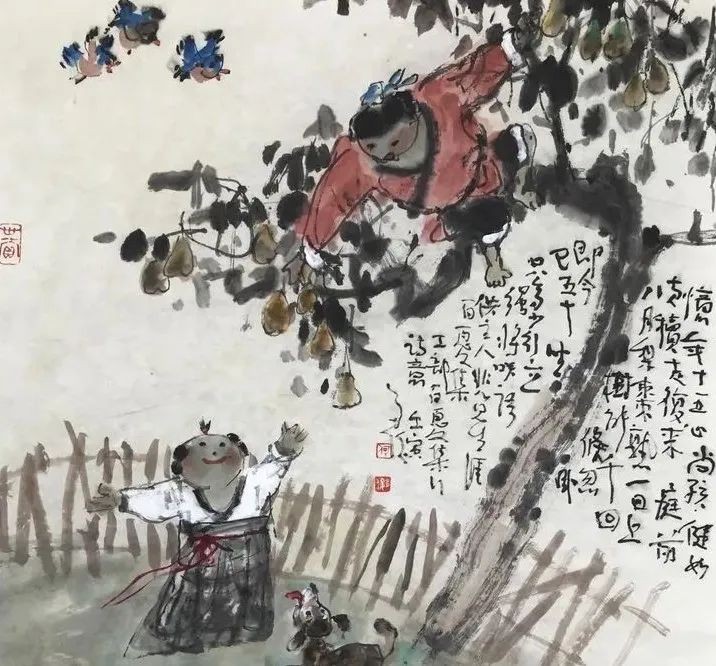 憶年十五心尚孩健如
黃犢走復來庭前
八月梨棗熟一日上
樹能千回
即今倏忽
已五十坐卧
只多少行立
强将咲語
供主人悲見生涯
百憂集
工部百憂集行
詩意壬寅